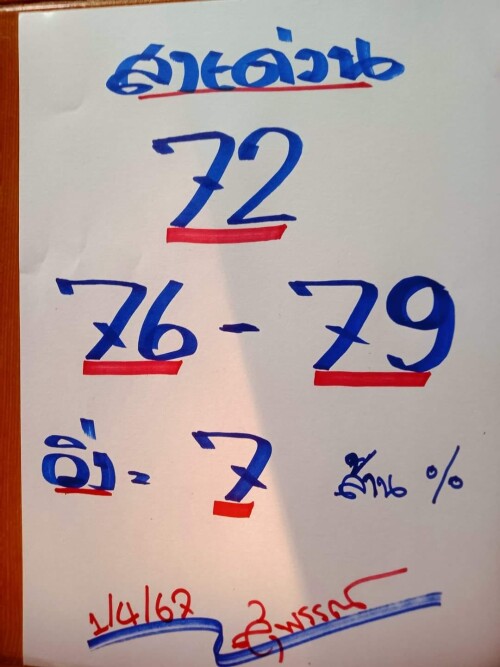 สายด่วน
72
76 - 79
วิ่ง = 7 ล้าน %
1/4/67 สุพรรณ์